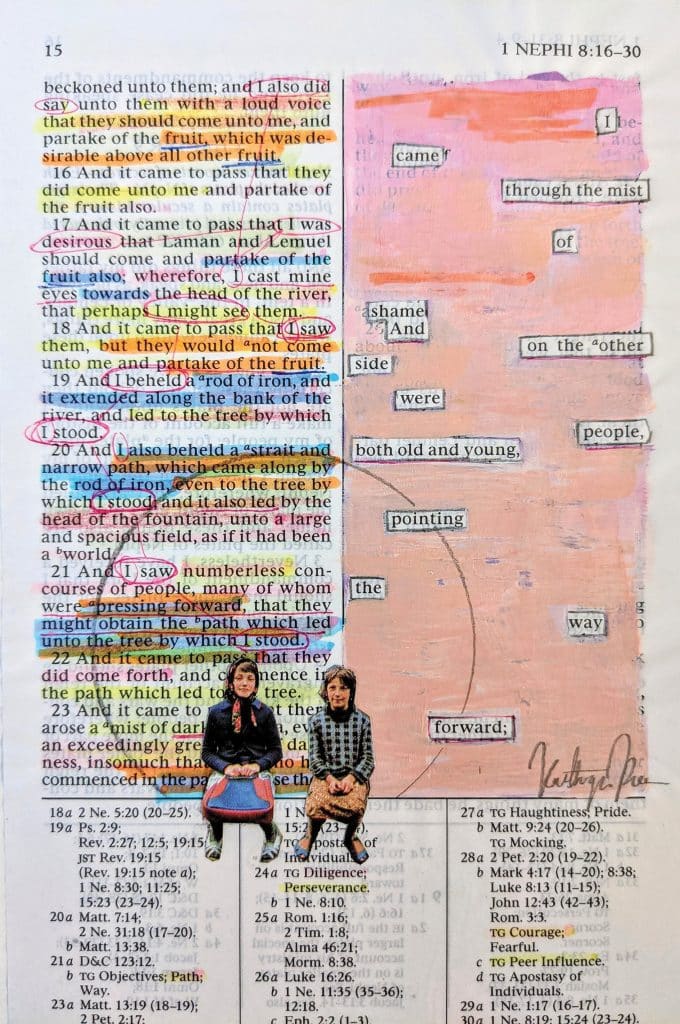 15
1 NEPHI 8:16–30
beckoned unto them; and I also did
say unto them with a loud voice
that they should come unto me, and
partake of the fruit, which was de-
sirable above all other fruit.
16 And it came to pass that they
did come unto me and partake of
the fruit also.
17 And it came to pass that I was
desirous that Laman and Lemuel
should come and partake of the
fruit also; wherefore, I cast mine
eyes towards the head of the river,
that perhaps I might see them.
18 And it came to pass that I saw
them, but they would ᵃnot come
unto me and partake of the fruit.
19 And I beheld a ᵃrod of iron, and
it extended along the bank of the
river, and led to the tree by which
I stood.
20 And I also beheld a ᵃstrait and
narrow path, which came along by
the rod of iron, even to the tree by
which I stood; and it also led by the
head of the fountain, unto a large
and spacious field, as if it had been
a ᵇworld.
21 And I saw numberless con-
courses of people, many of whom
were ᵃpressing forward, that they
might obtain the ᵇpath which led
unto the tree by which I stood.
22 And it came to pass that they
did come forth, and commence in
the path which led to tree.
23 And it came to that ther
arose a ᵃmist of dark
an exceedingly gre da
ness, insomuch tha ho h
commenced in the pa se the
I be-
came
through the mist
of
ᵃshame
And
on the ᵃother
side
were
people,
both old and young,
pointing
the
way
forward;
18a 2 Ne. 5:20 (20–25).
19a Ps. 2:9;
Rev. 2:27; 12:5; 19:15
JST Rev. 19:15
(Rev. 19:15 note a);
1 Ne. 8:30; 11:25;
15:23 (23–24).
20a Matt. 7:14;
2 Ne. 31:18 (17–20).
b Matt. 13:38.
21a D&C 123:12.
b TG Objectives; Path;
Way.
23a Matt. 13:19 (18–19);
2 Pet. 2:17;
1 N
15:2 (23–24).
TG Apostasy of
Individuals.
24a TG Diligence;
Perseverance.
b 1 Ne. 8:10.
25a Rom. 1:16;
2 Tim. 1:8;
Alma 46:21;
Morm. 8:38.
26a Luke 16:26.
b 1 Ne. 11:35 (35–36);
12:18.
c Eph. 2:2 (1–3).
27a TG Haughtiness; Pride.
b Matt. 9:24 (20–26).
TG Mocking.
28a 2 Pet. 2:20 (19–22).
b Mark 4:17 (14–20); 8:38;
Luke 8:13 (11–15);
John 12:43 (42–43);
Rom. 3:3.
TG Courage;
Fearful.
c TG Peer Influence.
d TG Apostasy of
Individuals.
29a 1 Ne. 1:17 (16–17).
30a 1 Ne. 8:19; 15:24 (23–24).